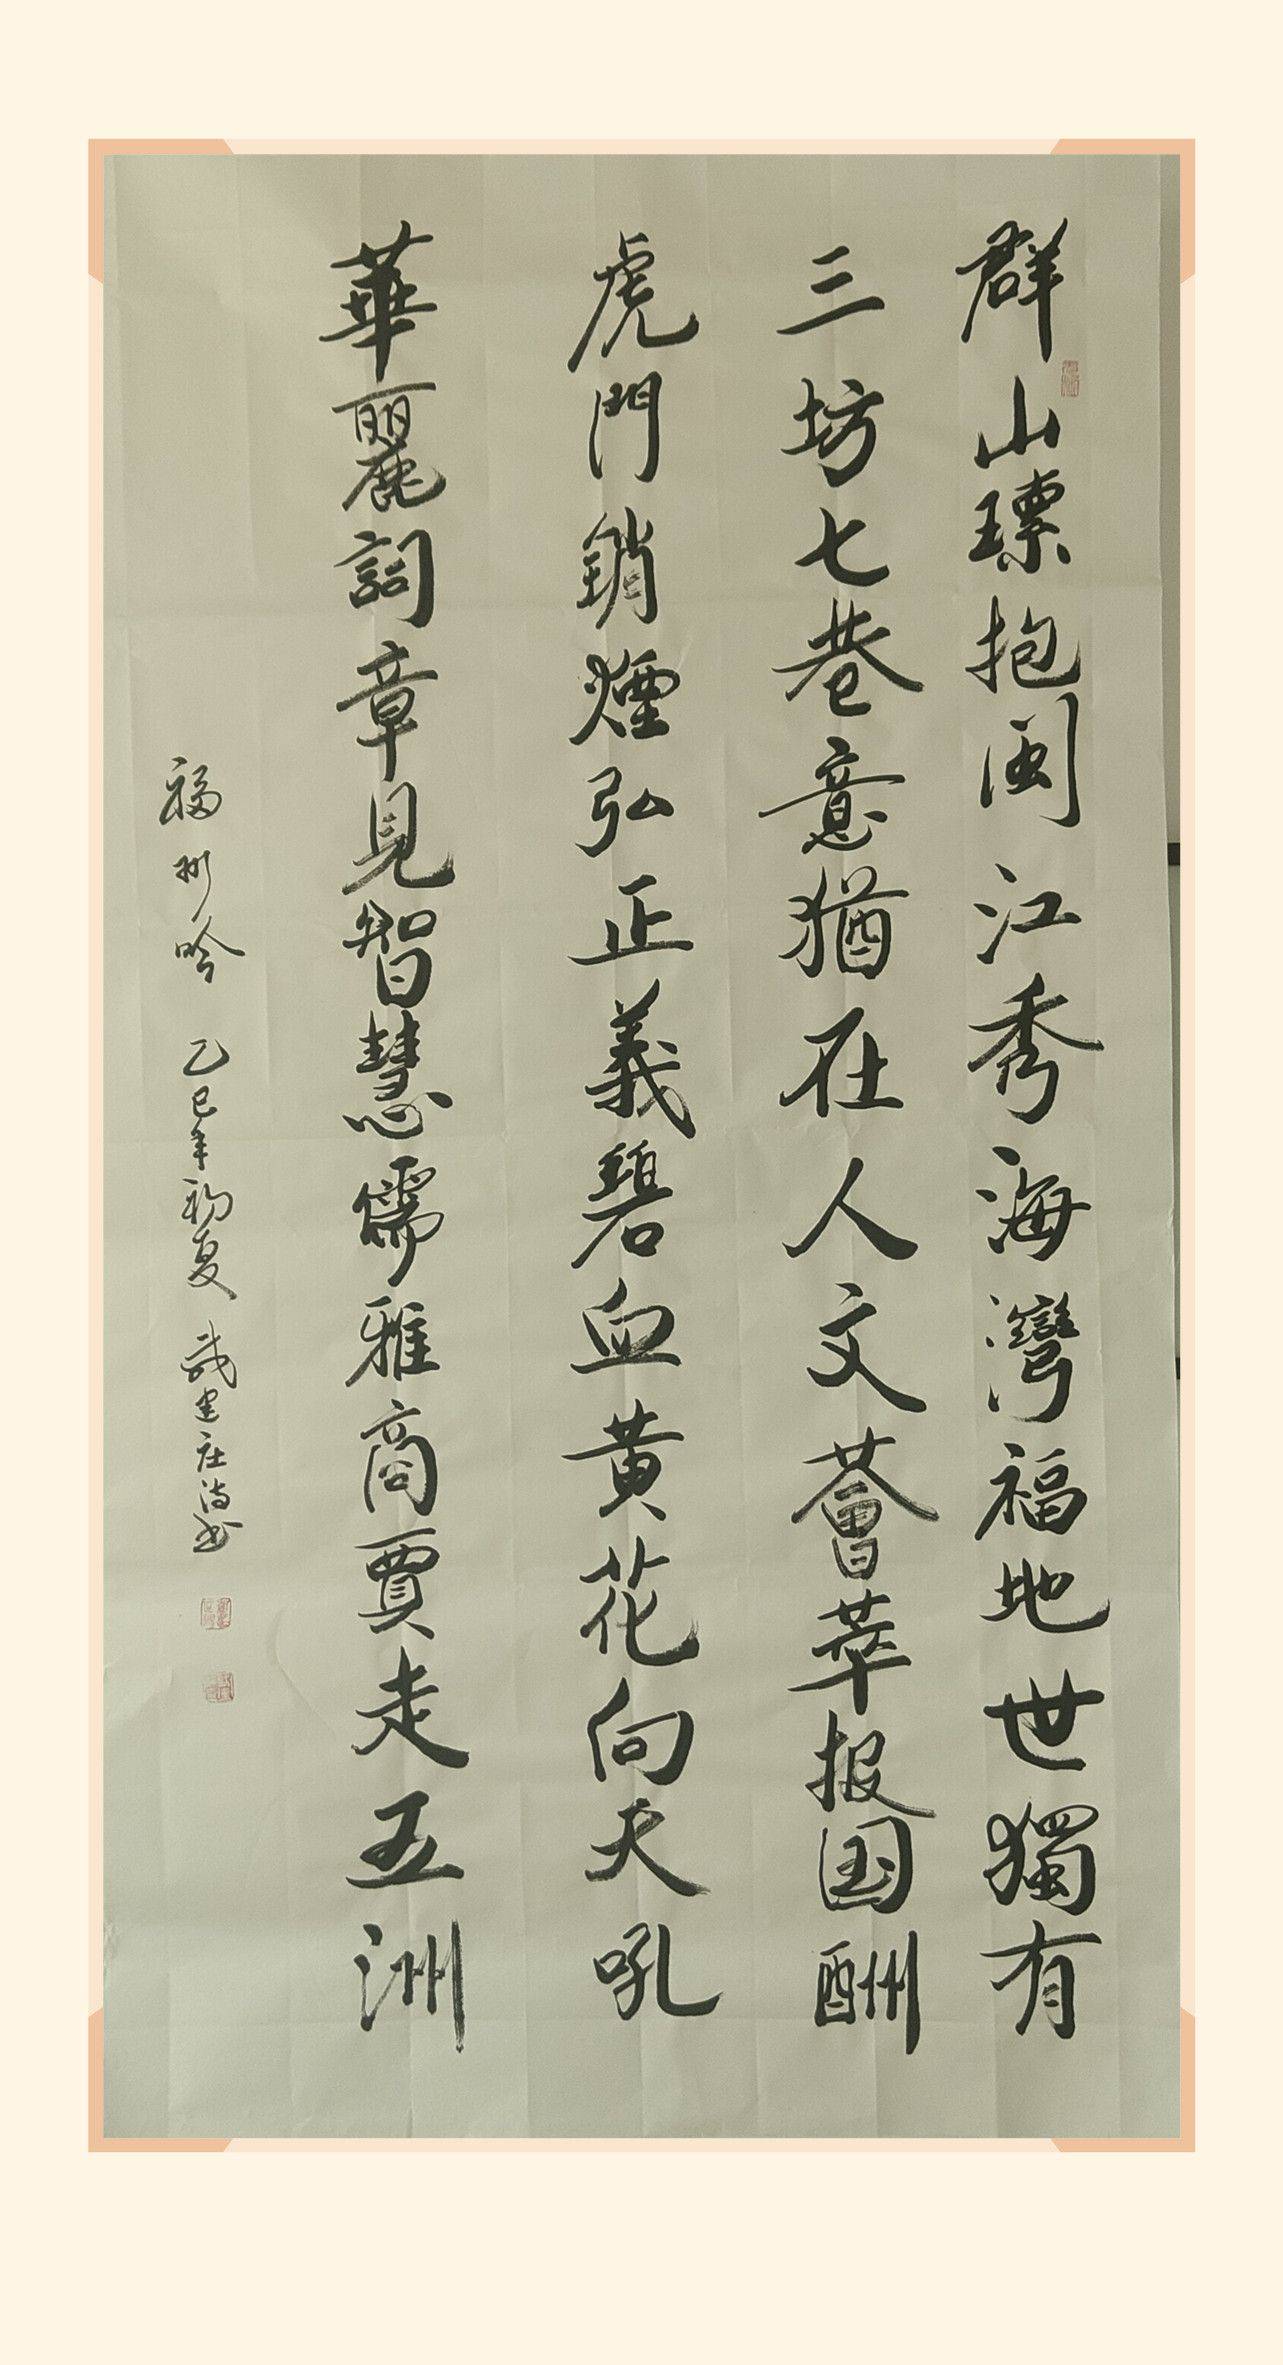 群山環抱闽江秀海灣福地世獨有
三坊七巷意猶在人文薈萃报国酬
虎門銷煙弘正義碧血黄花向天吼
華麗詞章見智慧儒雅商賈走五洲
福州吟 乙巳年初夏 建庄诗书